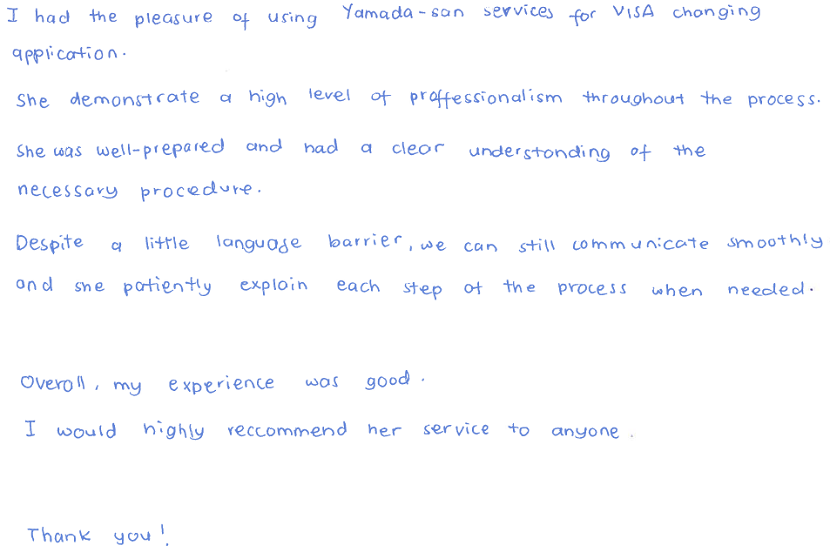 I had the pleasure of using Yamada-san services for VISA changing
application.
She demonstrate a high level of proffessionalism throughout the process.
She was well-prepared and had a clear understanding of the
necessary procedure.
Despite a little language barrier, we can still communicate smoothly
and she patiently explain each step of the process when needed.
Overall, my experience was good.
I would highly reccommend her service to anyone.
Thank you!